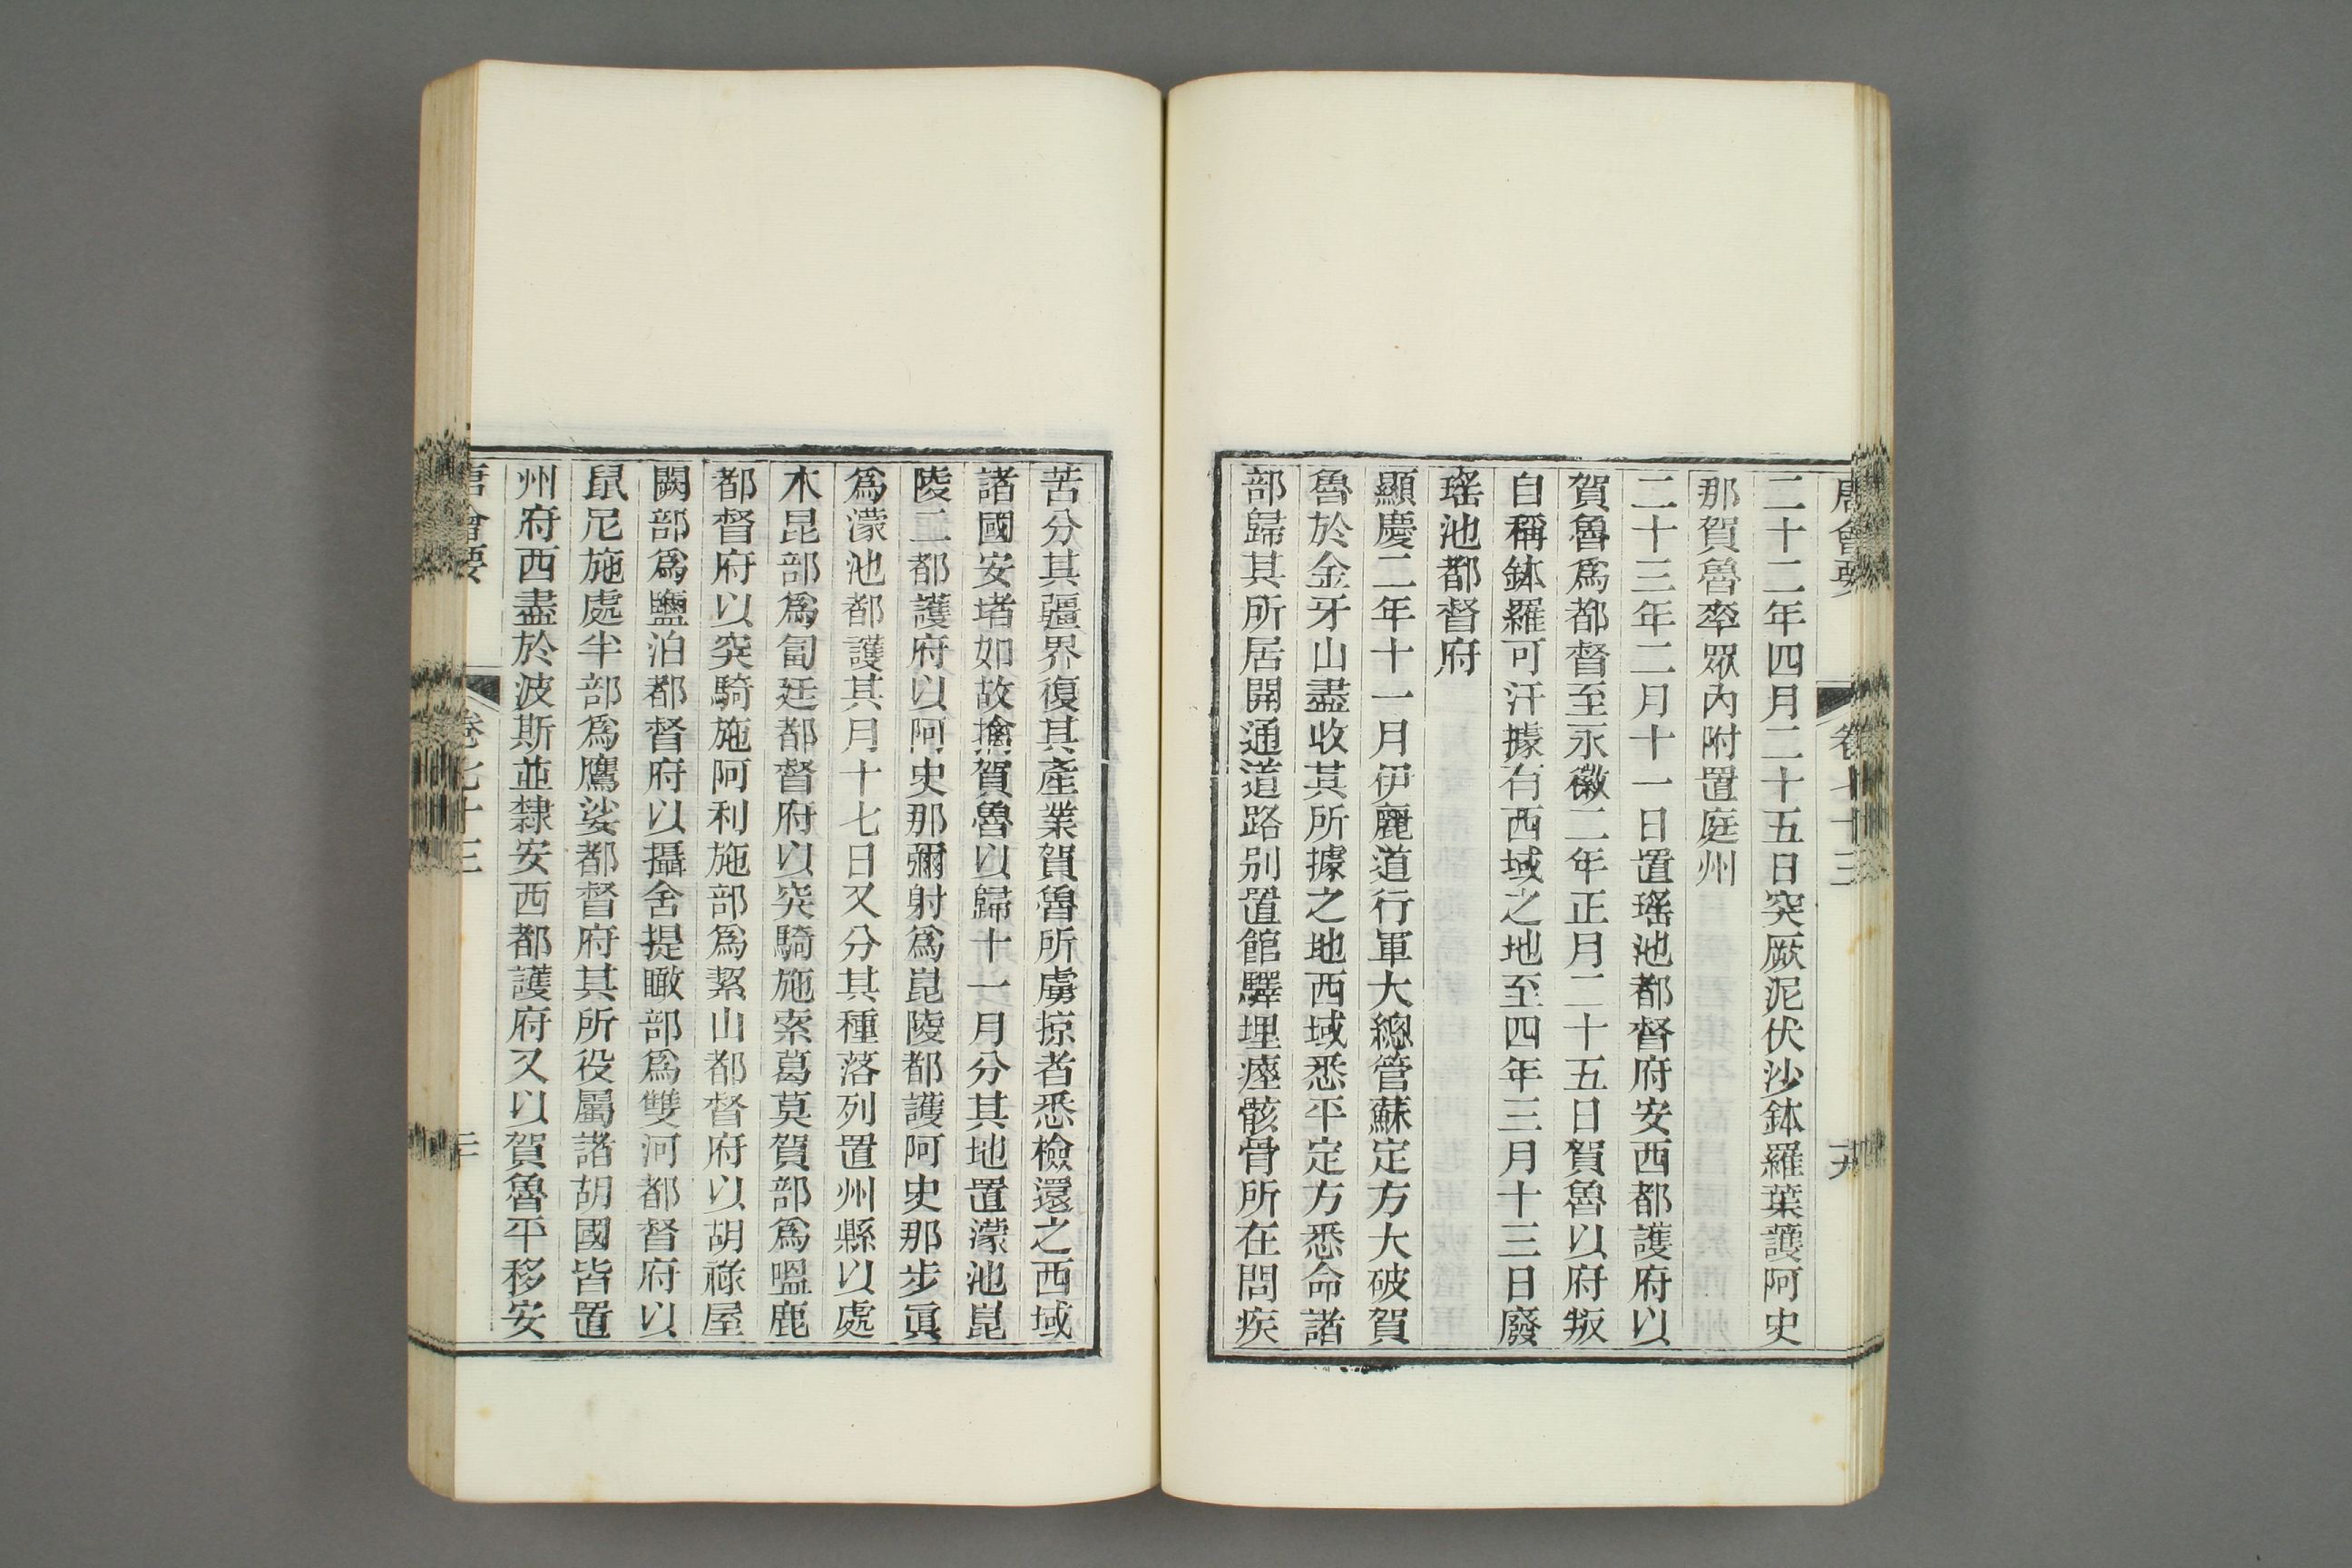 唐會要 卷七十三 十九
二十二年四月二十五日突厥泥伏沙鉢羅葉護阿史
那賀魯率眾內附置庭州
二十三年二月十一日置瑤池都督府安西都護府以
賀魯爲都督至永徽二年正月二十五日賀魯以府叛
自稱鉢羅可汗據有西域之地至四年三月十三日廢
瑤池都督府
顯慶二年十一月伊麗道行軍大總管蘇定方大破賀
魯於金牙山盡收其所據之地西域悉平定方悉命諸
部歸其所居開通道路别置館驛埋瘞骸骨所在問疾
苦分其疆界復其產業賀魯所虜掠者悉檢還之西域
諸國安堵如故擒賀魯以歸十一月分其地置濛池崑
陵二都護府以阿史那彌射爲崑陵都護阿史那步真
爲濛池都護其月十七日又分其種落列置州縣以處
木昆部爲匐廷都督府以突騎施索葛莫賀部爲嗢鹿
都督府以突騎施阿利施部爲絜山都督府以胡祿屋
闕部爲鹽泊都督府以攝舍提暾部爲雙河都督府以
鼠尼施處半部爲鷹娑都督府其所役屬諸胡國皆置
州府西盡於波斯並隸安西都護府又以賀魯平移安
唐會要 卷七十三 二十